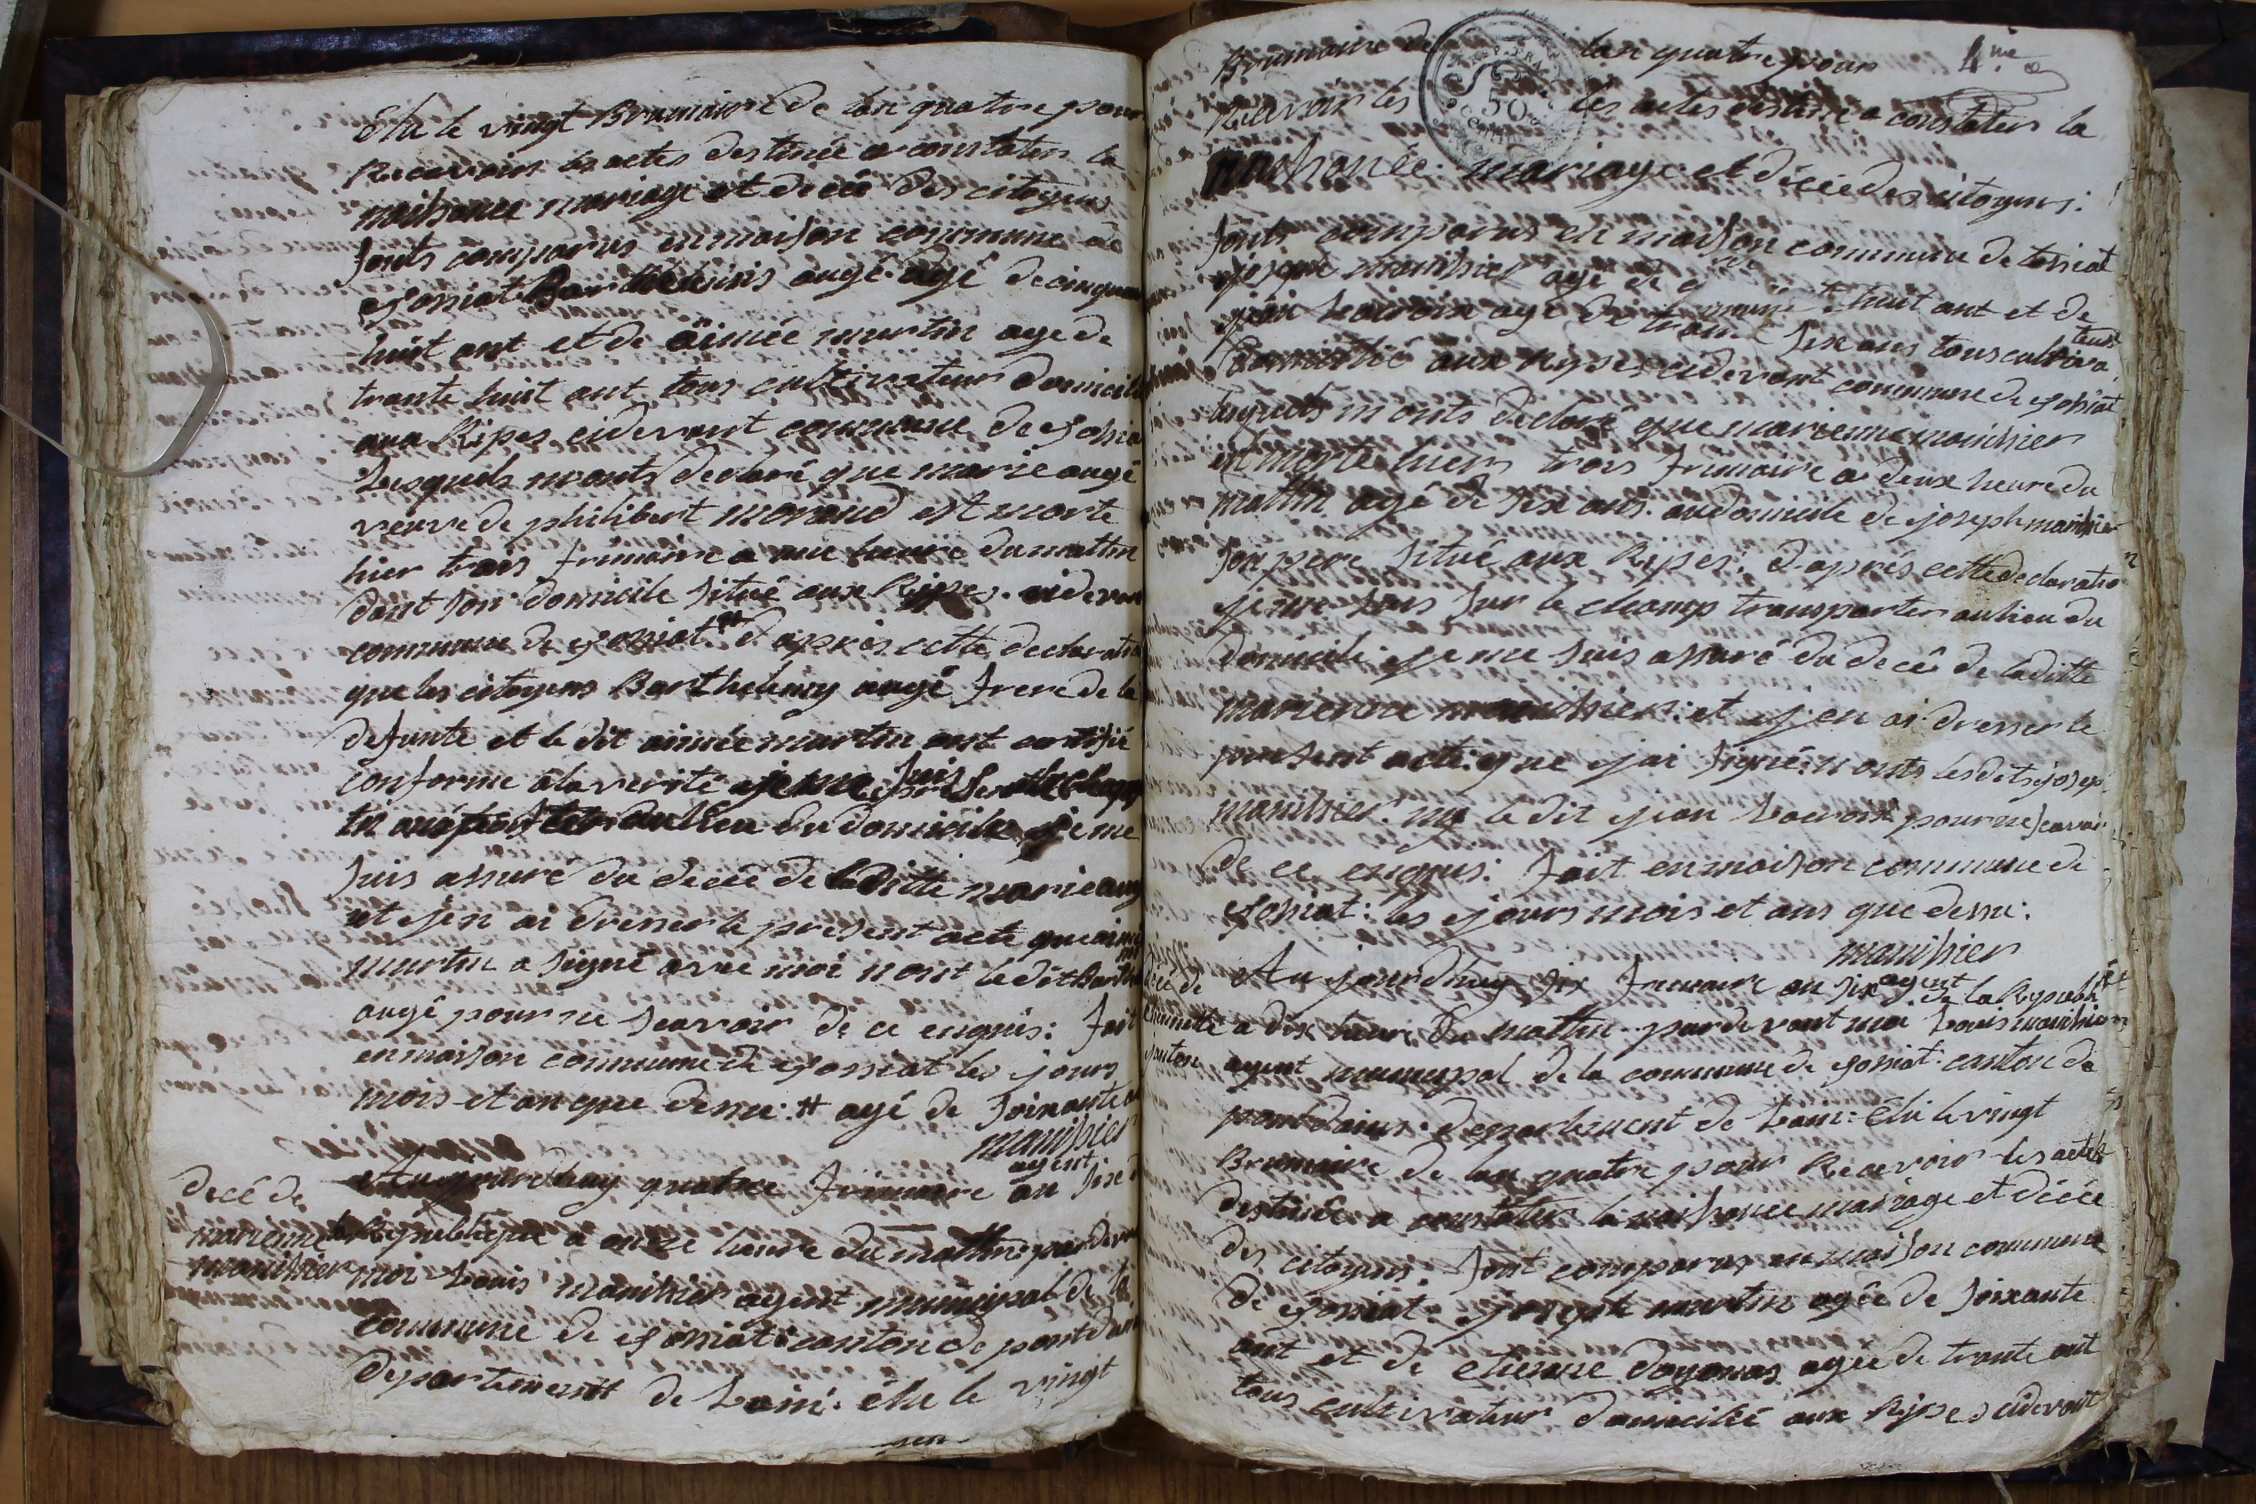 élu le vingt Brumaire de lan quatre pour
Recevoir les actes destinée a constater la
naissance mariage et decée des citoyens
sonts comparus en maison commune de
Barthelemis augé agé de cinquan
huit ant et de aimée martin age de
trante huit ant tous cultivateur domicil
aux Ripes cidevant commune de
Lesquels monts declaré que marie augé
veuve de philibert morand est morte
hier trois frimaire a une heure du mattin
dant son domicile situé aux Ripes. cidevan
commune de # d'après cette declaratio
que les citoyens Barthelemy augé frere de la
defunte et le dit aimée martin ont certifié
conforme a la verité je me suis sur le champ
au lieu du domicile je me
suis assuré du decée de laditte marie aug
et jen ai dresser le présent acte que aimé
martin a signé avec moi nont le dit Barth
augé pour ne scavoir de ce enquis: fait
en maison commune de les jours
mois et an que dessu: # agé de soixante
manihier
agent
decé de
marienne
manihier
Aujourdhuy quatre frimaire an sixe d
la Republique a onze heure du mattin par devan
moi Louis manihier agent municipal de la
commune de canton de pont dain
departement de Lain: élu le vingt
4me
Brumaire de lan quatre pour
Recevoir les les actes destiné a constater la
naissance: mariage et décée des citoyens:
sonts comparus en maison commune de
joseph manihier agé de huit ant et de
jean Lacroix agé de trante six ans tous cultiva
teur
domicilié aux Ripes cidevant commune de
lesquels monts declaré que marienne manihier
morte hiers trois frimaire a deux heure du
mattin agé de six ans. au domicile de joseph manihier
son pere situé aux Ripes: d'après cette declaratio
n
je me suis sur le champ transporter au lieu du
domicile je me suis assuré du decée de laditte
marienne manihier: et jen ai dresser le
présent acte: que jai signé: nonts les dits josep
manihier: ny le dit jean Lacroix pour ne scavoir
de ce enquis: fait en maison commune de
les jours mois et ans que dessu:
manihier
agent
décé de
Aujourdhuy six frimaire an six de la Republi
a dix heure du mattin par devant moi Louis manihier
agent municipal de la commune de canton de
pont dains: departement de Lain: élu le vingt
Brumaire de lan quatre pour Recevoir les actes
destinée a constater la naissance mariage et décée
des citoyens: sont comparus en maison commune
de joseph martin agée de soixante
ant et de etienne dagonas agée de trante ant
tous cultivateur domicilié aux Ripes cidevant